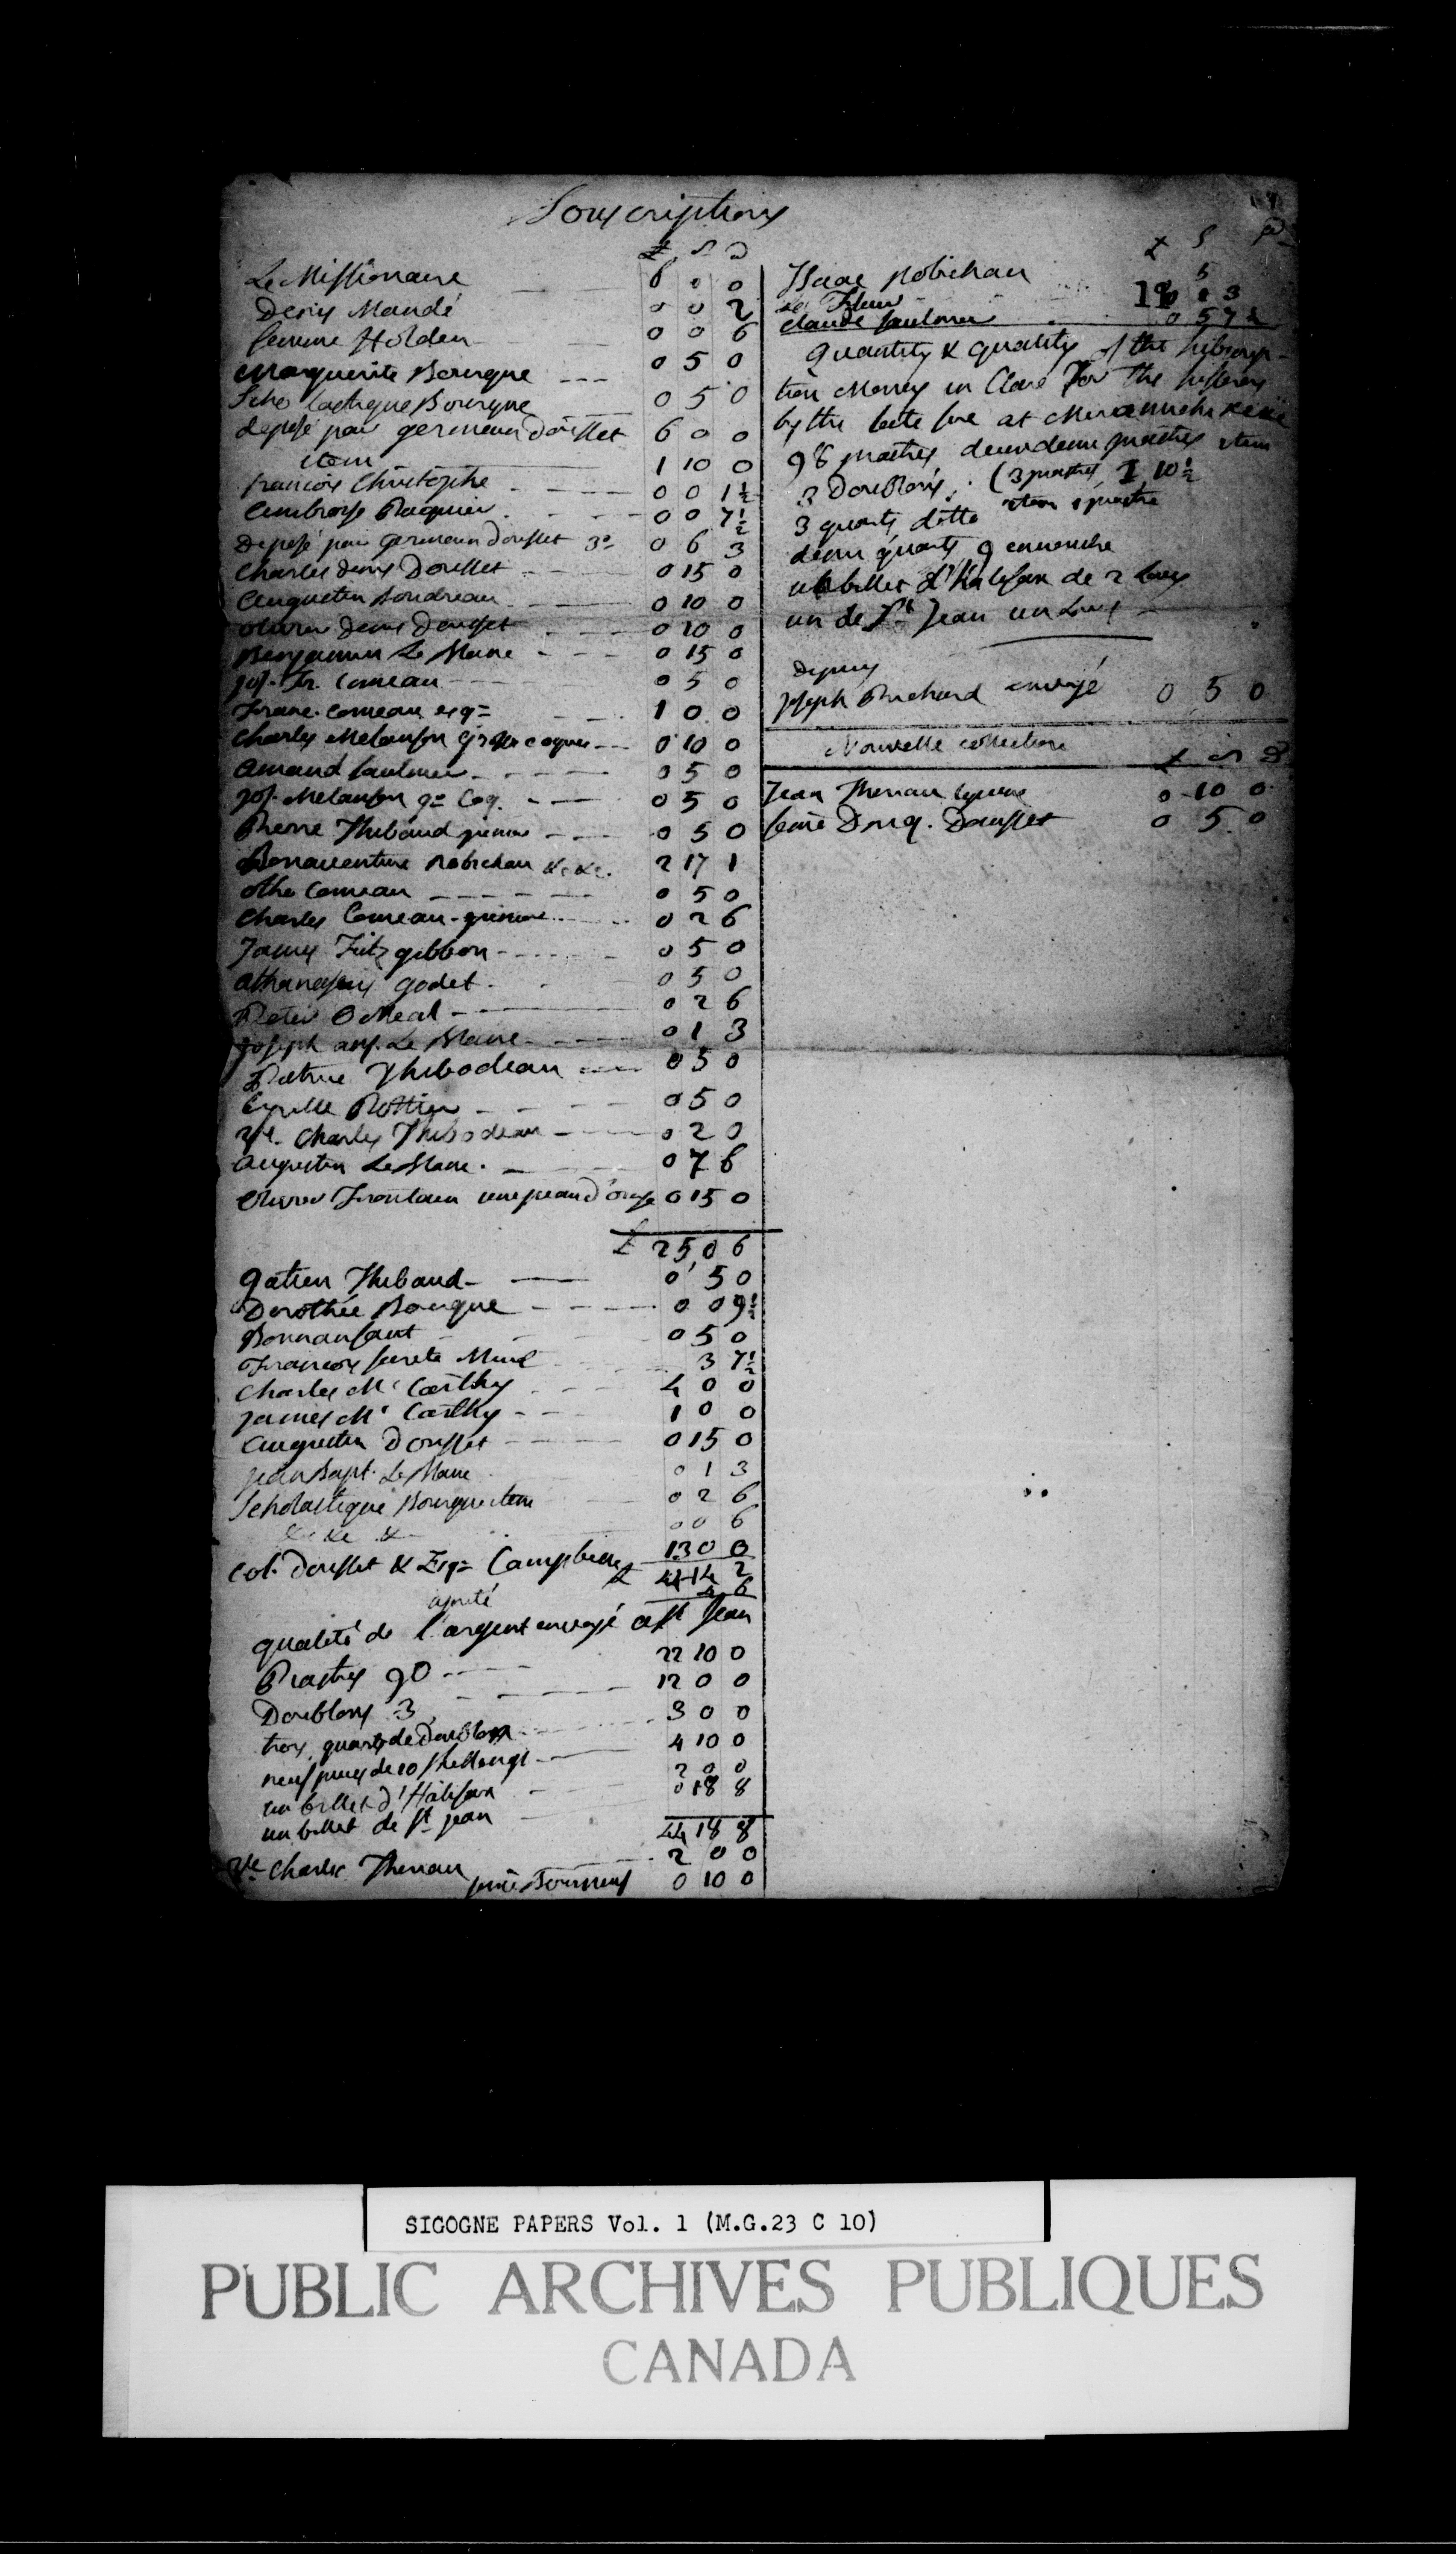 Souscriptions
£ S D
Le Missionaire 6 0 0
Denis Maudé 0 0 2
femme Holden 0 0 6
Marguerite Bourque 0 5 0
Scholastique Bourque 0 5 0
deposé par germain Doucet 6 0 0
item 1 10 0
francois Christophe 0 0 1½
Ambroise Paquier 0 0 7½
Deposé par germain Doucet 3º 0 6 3
Charles denis Doucet 0 15 0
Augustin Boudreau 0 10 0
olivier Denis Doucet 0 10 0
Benjamin Le Blanc 0 15 0
Jos. fr. Comeau 0 5 0
Franc. Comeau esq= 1 0 0
Charles Melanson grosses coques 0 10 0
Amand saulnier 0 5 0
Jos. Melanson gs Coq. 0 5 0
Pierre Thibaud 0 5 0
Bonaventure Robichau &c &c. 2 17 1
otho Comeau 0 5 0
Charles Comeau 0 2 6
James Fitzgibbon 0 5 0
Athanasius godet 0 5 0
Peter O Neal 0 2 6
Joseph ans. Le Blanc 0 1 3
Patrice Thibodeau 0 5 0
Cyrille Pottier 0 5 0
Ve. Charles Thibodeau 0 2 0
Augustin Le Blanc 0 7 6
Olivier Frontain une peau d'ours 0 15 0
£ 25 0 6
gatien Thibaud 0 5 0
Dorothée Bourque 0 0 9½
Bonnanfant 0 5 0
Francois 3 7½
Charles Mc Carthy 4 0 0
James Mc Carthy 1 0 0
Augustin Doucet 0 15 0
Jean Bapt. Le Blanc 0 1 3
Scholastique Bourque item 0 2 6
&c &c &c 0 0 6
Col. Doucet & Esq= Campbell 13 0 0
£ 44 14 2
ajouté 4 6
qualité de l'argent envoyé a St Jean
Piastres 90 22 10 0
Doublons 3 12 0 0
trois quarts de Doublons 3 0 0
neuf pieces de 10 shellings 4 10 0
un billet d'Halifax 2 0 0
un billet de St Jean 0 18 8
44 18 8
Ve Charles Theriau 2 0 0
Bourneuf 0 10 0
£ S D
Isaac Robichau 5
Claude saulnier 0 5 7½
Quantity & quality of the subscrip-
tion Money in Clare for the sufferers
by the late fire at Miramichi
98 piastres deux demi piastres item
3 Doublons. (3 piastres 1 10½
3 quarts ditto item 1 piastre
demi quarts 9
un billet d'Halifax de 2 Louis
un de St Jean un Louis
depuis
Joseph Prichard envoyé 0 5 0
Nouvelle collection
£ S D
Jean Theriau 0 10 0
Douq. Doucet 0 5 0
SIGOGNE PAPERS Vol. 1 (M.G.23 C 10)
PUBLIC ARCHIVES PUBLIQUES
CANADA